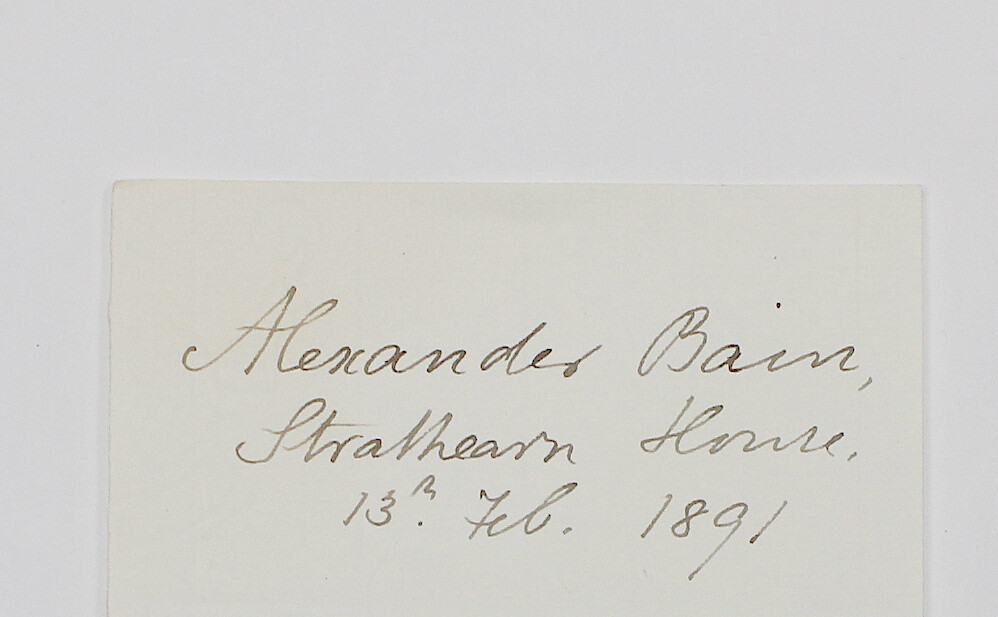 Alexander Bain,
Strathearn House.
13th. Feb. 1891